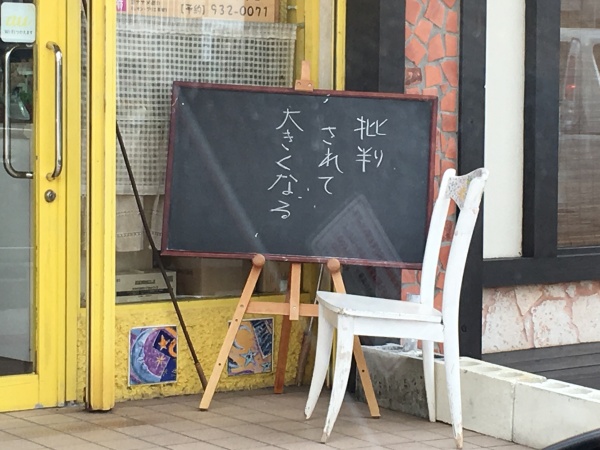 批判
されて
大きくなる
【予約】932-0071
au